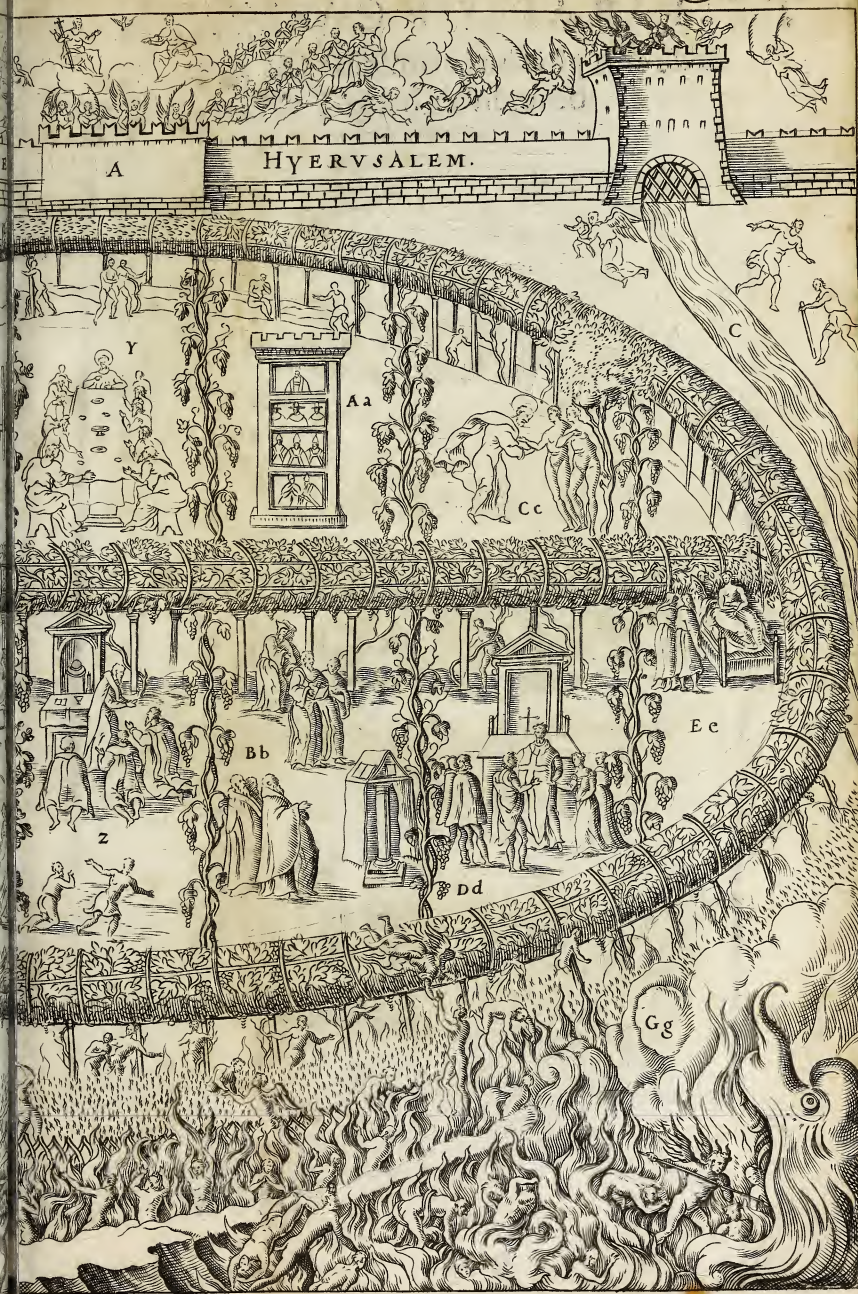 A
HYERVSALEM.
C
Y
Aa
Cc
Bb
Ee
Z
Dd
Gg